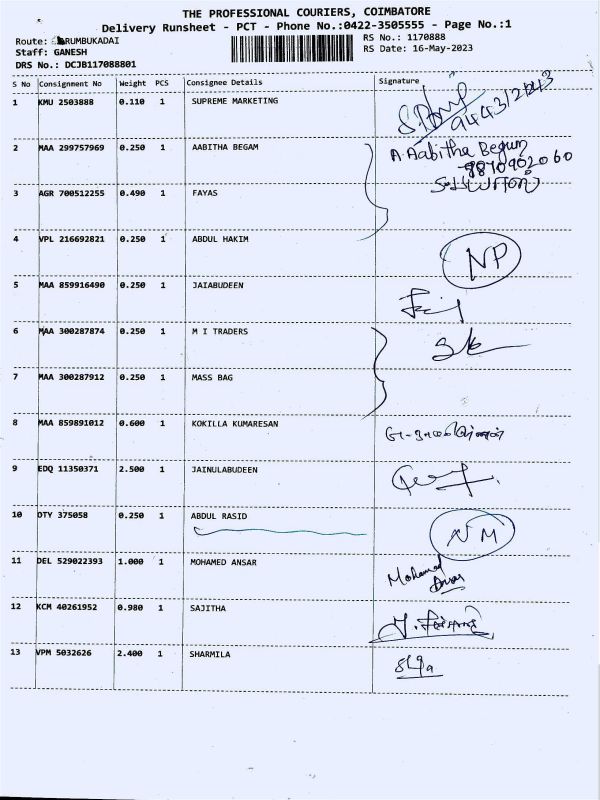 THE PROFESSIONAL COURIERS, COIMBATORE
Delivery Runsheet - PCT - Phone No.:0422-3505555 - Page No.:1
Route: RUMBUKADAI RS No.: 1170888
Staff: GANESH RS Date: 16-May-2023
DRS No.: DCJB117088801
S No Consignment No Weight PCS Consignee Details Signature
1 KMU 2503888 0.110 1 SUPREME MARKETING
2 MAA 299757969 0.250 1 AABITHA BEGAM A.Aabitha Begum
9870902060
3 AGR 700512255 0.490 1 FAYAS
4 VPL 216692821 0.250 1 ABDUL HAKIM NP
5 MAA 859916490 0.250 1 JAIABUDEEN
6 MAA 300287874 0.250 1 M I TRADERS
7 MAA 300287912 0.250 1 MASS BAG
8 MAA 859891012 0.600 1 KOKILLA KUMARESAN
9 EDQ 11350371 2.500 1 JAINULABUDEEN
10 DTY 375058 0.250 1 ABDUL RASID NM
11 DEL 529022393 1.000 1 MOHAMED ANSAR Mohamed
Ansar
12 KCM 40261952 0.980 1 SAJITHA
13 VPM 5032626 2.400 1 SHARMILA